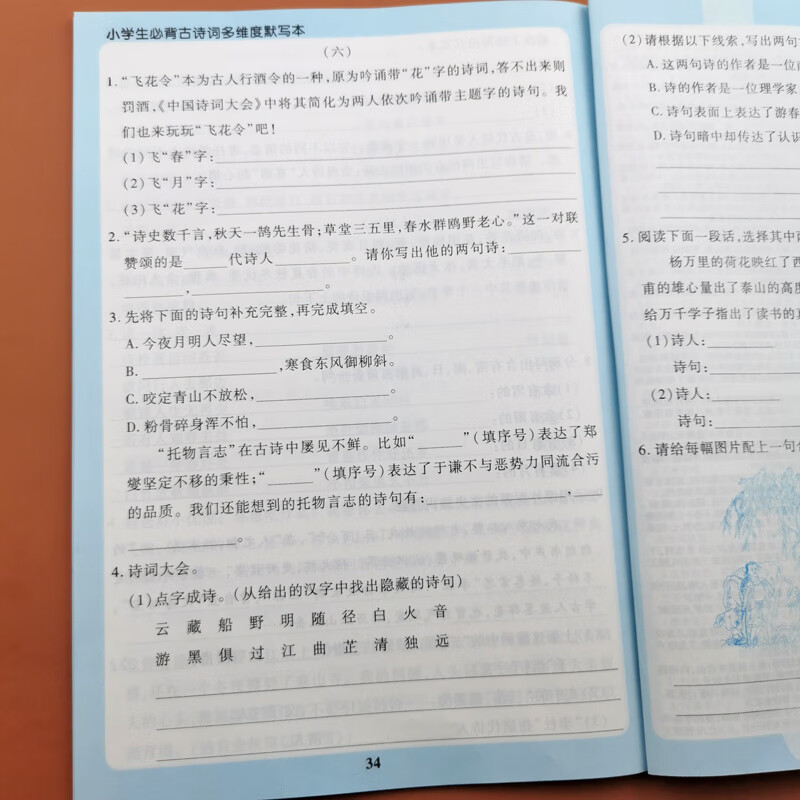 小学生必背古诗词多维度默写本
（六）
1.“飞花令”本为古人行酒令的一种，原为吟诵带“花”字的诗词，答不出来则
罚酒，《中国诗词大会》中将其简化为两人依次吟诵带主题字的诗句。我
们也来玩玩“飞花令”吧！
(1)飞“春”字：
(2)飞“月”字：
(3)飞“花”字：
2.“诗史数千言，秋天一鹄先生骨；草堂三五里，春水群鸥野老心。”这一对联
赞颂的是 代诗人 。请你写出他的两句诗：
， 。
3.先将下面的诗句补充完整，再完成填空。
A.今夜月明人尽望， 。
B. ，寒食东风御柳斜。
C.咬定青山不放松， 。
D.粉骨碎身浑不怕， 。
“托物言志”在古诗中屡见不鲜。比如“ ”（填序号）表达了郑
燮坚定不移的秉性；“ ”（填序号）表达了于谦不与恶势力同流合污
的品质。我们还能想到的托物言志的诗句有： ，
。
4.诗词大会。
(1)点字成诗。（从给出的汉字中找出隐藏的诗句）
云 藏 船 野 明 随 径 白 火 音
游 黑 俱 过 江 曲 芷 清 独 远
34
(2)请根据以下线索，写出两句
A.这两句诗的作者是一位
B.诗的作者是一位理学家
C.诗句表面上表达了游春
D.诗句暗中却传达了认识
5.阅读下面一段话，选择其中
杨万里的荷花映红了西
甫的雄心量出了泰山的高度
给万千学子指出了读书的真
(1)诗人：
诗句：
(2)诗人：
诗句：
6.请给每幅图片配上一句